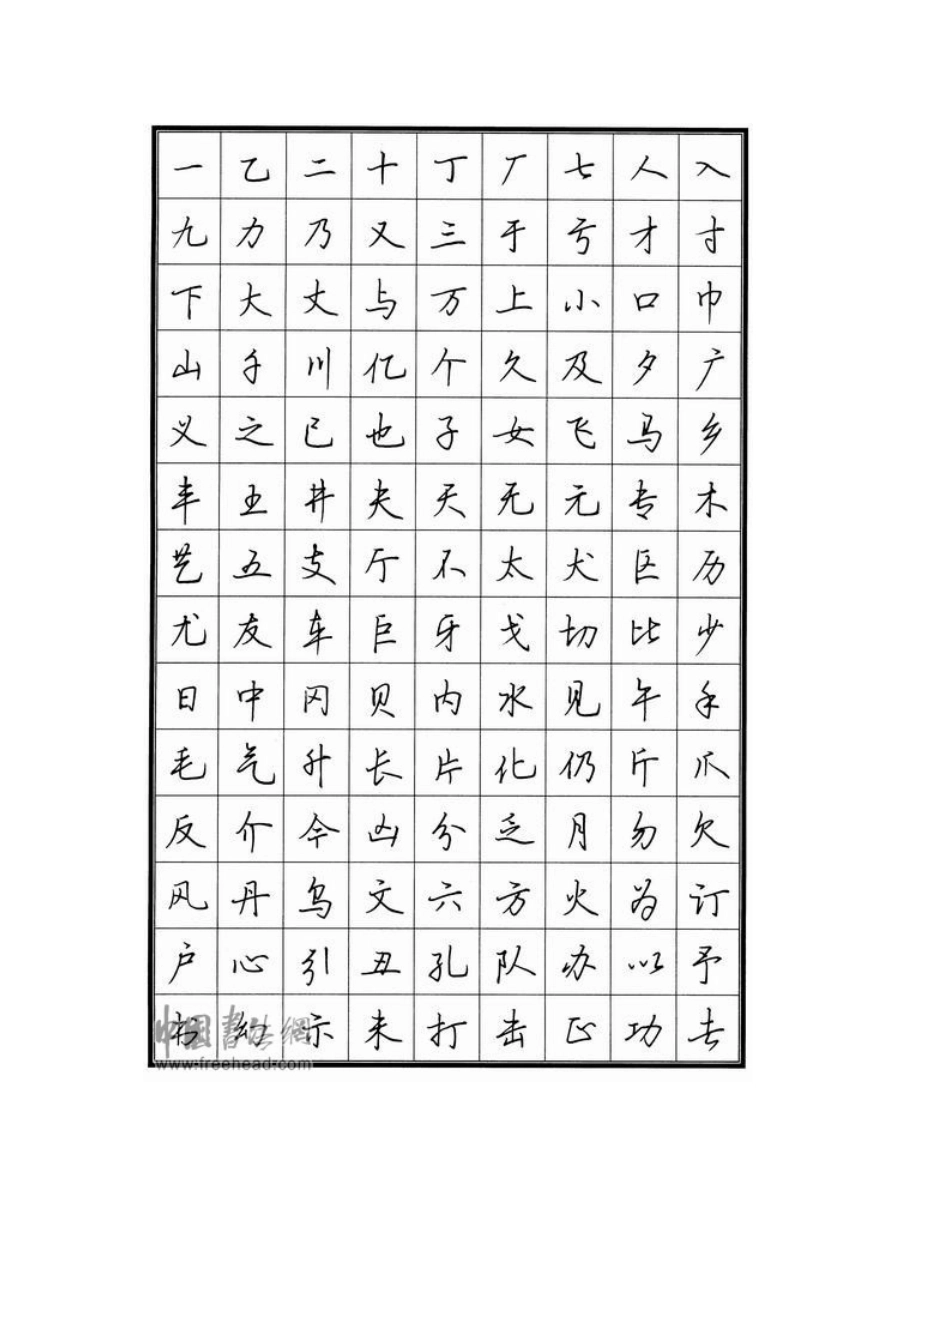 一 乙 二 十 丁 厂 七 人 入
九 力 乃 又 三 于 亏 才 寸
下 大 丈 与 万 上 小 口 巾
山 千 川 亿 个 久 及 夕 广
义 之 已 也 子 女 飞 马 乡
丰 王 井 夫 天 无 元 专 木
艺 五 支 厅 不 太 犬 区 历
尤 友 车 巨 牙 戈 切 比 少
日 中 冈 贝 内 水 见 午 手
毛 气 升 长 片 化 仍 斤 爪
反 介 今 凶 分 乏 月 勿 欠
风 丹 乌 文 六 方 火 为 订
户 心 引 丑 孔 队 办 以 予
书 幻 示 末 打 击 正 功 去
中國書法網
www.freehead.com